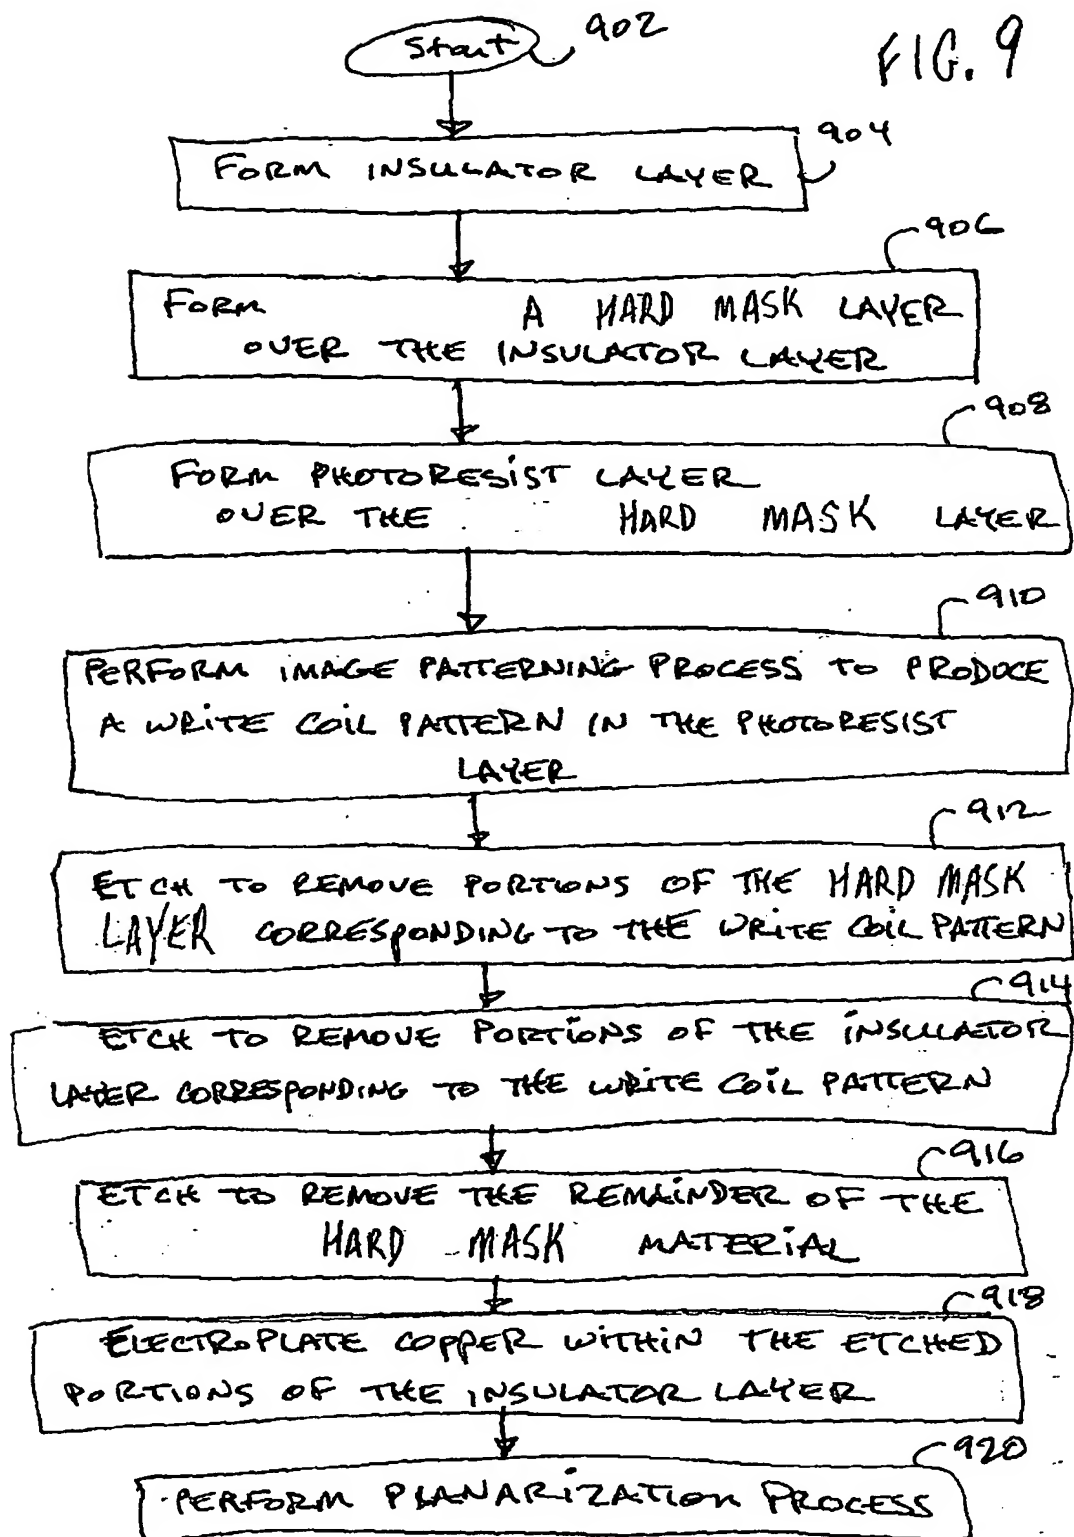 Start 902
FIG. 9
904
FORM INSULATOR LAYER
906
FORM A HARD MASK LAYER
OVER THE INSULATOR LAYER
908
FORM PHOTORESIST LAYER
OVER THE HARD MASK LAYER
910
PERFORM IMAGE PATTERNING PROCESS TO PRODUCE
A WRITE COIL PATTERN IN THE PHOTORESIST
LAYER
912
ETCH TO REMOVE PORTIONS OF THE HARD MASK
LAYER CORRESPONDING TO THE WRITE COIL PATTERN
914
ETCH TO REMOVE PORTIONS OF THE INSULATOR
LAYER CORRESPONDING TO THE WRITE COIL PATTERN
916
ETCH TO REMOVE THE REMAINDER OF THE
HARD MASK MATERIAL
918
ELECTROPLATE COPPER WITHIN THE ETCHED
PORTIONS OF THE INSULATOR LAYER
920
PERFORM PLANARIZATION PROCESS